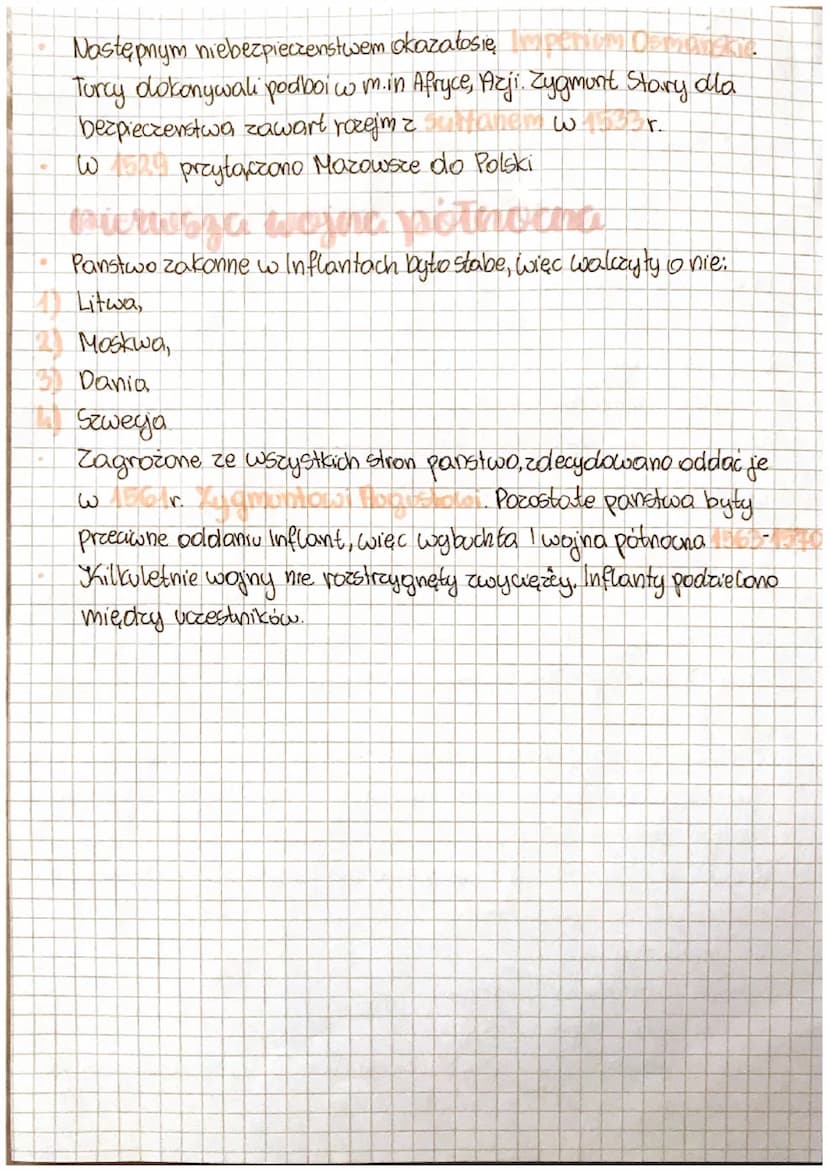 • Następnym niebezpieczenstwem okazało się Imperium Osmańskie.
Turcy dokonywali podboi w m.in Afryce, Azji. Zygmunt Stary dla
bezpieczenstwa zawarł rozejm z sułtanem w 1533 r.
• W 1529 przyłączono Mazowsze do Polski
pierwsza wojna północna
• Panstwo zakonne w Inflantach było słabe, więc walczyły o nie:
1) Litwa,
2) Moskwa,
3) Dania
4) Szwecja
• Zagrożone ze wszystkich stron panstwo, zdecydowano oddać je
w 1561 r. Zygmuntowi Augustowi. Pozostałe panstwa były
przeciwne oddaniu Inflant, więc wybuchła I wojna północna 1563-1570
• Kilkuletnie wojny nie rozstrzygnęły zwyciężcy. Inflanty podzielono
między uczestników.